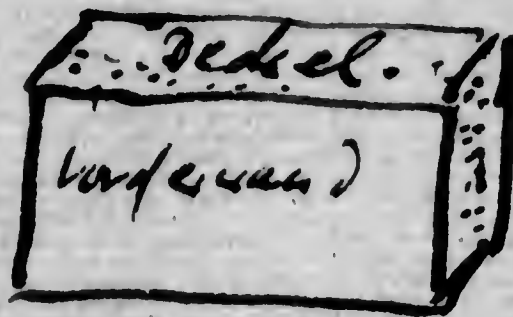 Deckel.
Vorderwand